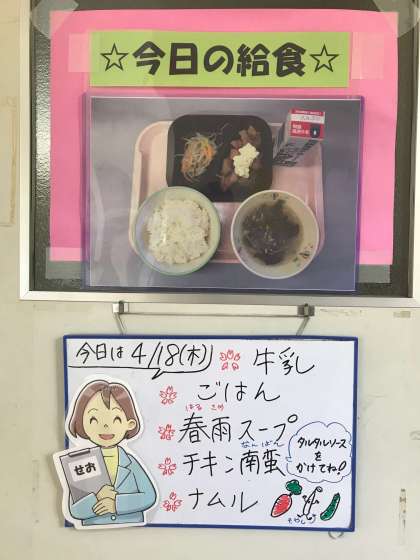 ☆今日の給食☆
今日は 4/18(木)
牛乳
ごはん
はる さめ
春雨スープ
なんばん
チキン南蛮
ナムル
タルタルソース
を
かけてね!
せお
もやし